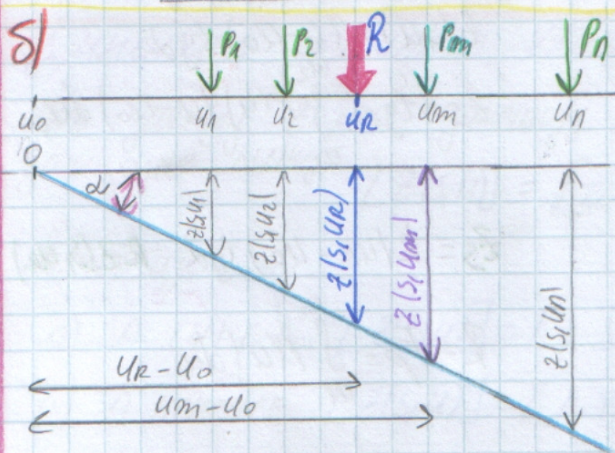 б)
P1 P2 R Pm Pn
u0 u1 u2 uR um un
0
α
z(s,u1) z(s,u2) z(s,uR) z(s,um) z(s,un)
uR-u0
um-u0